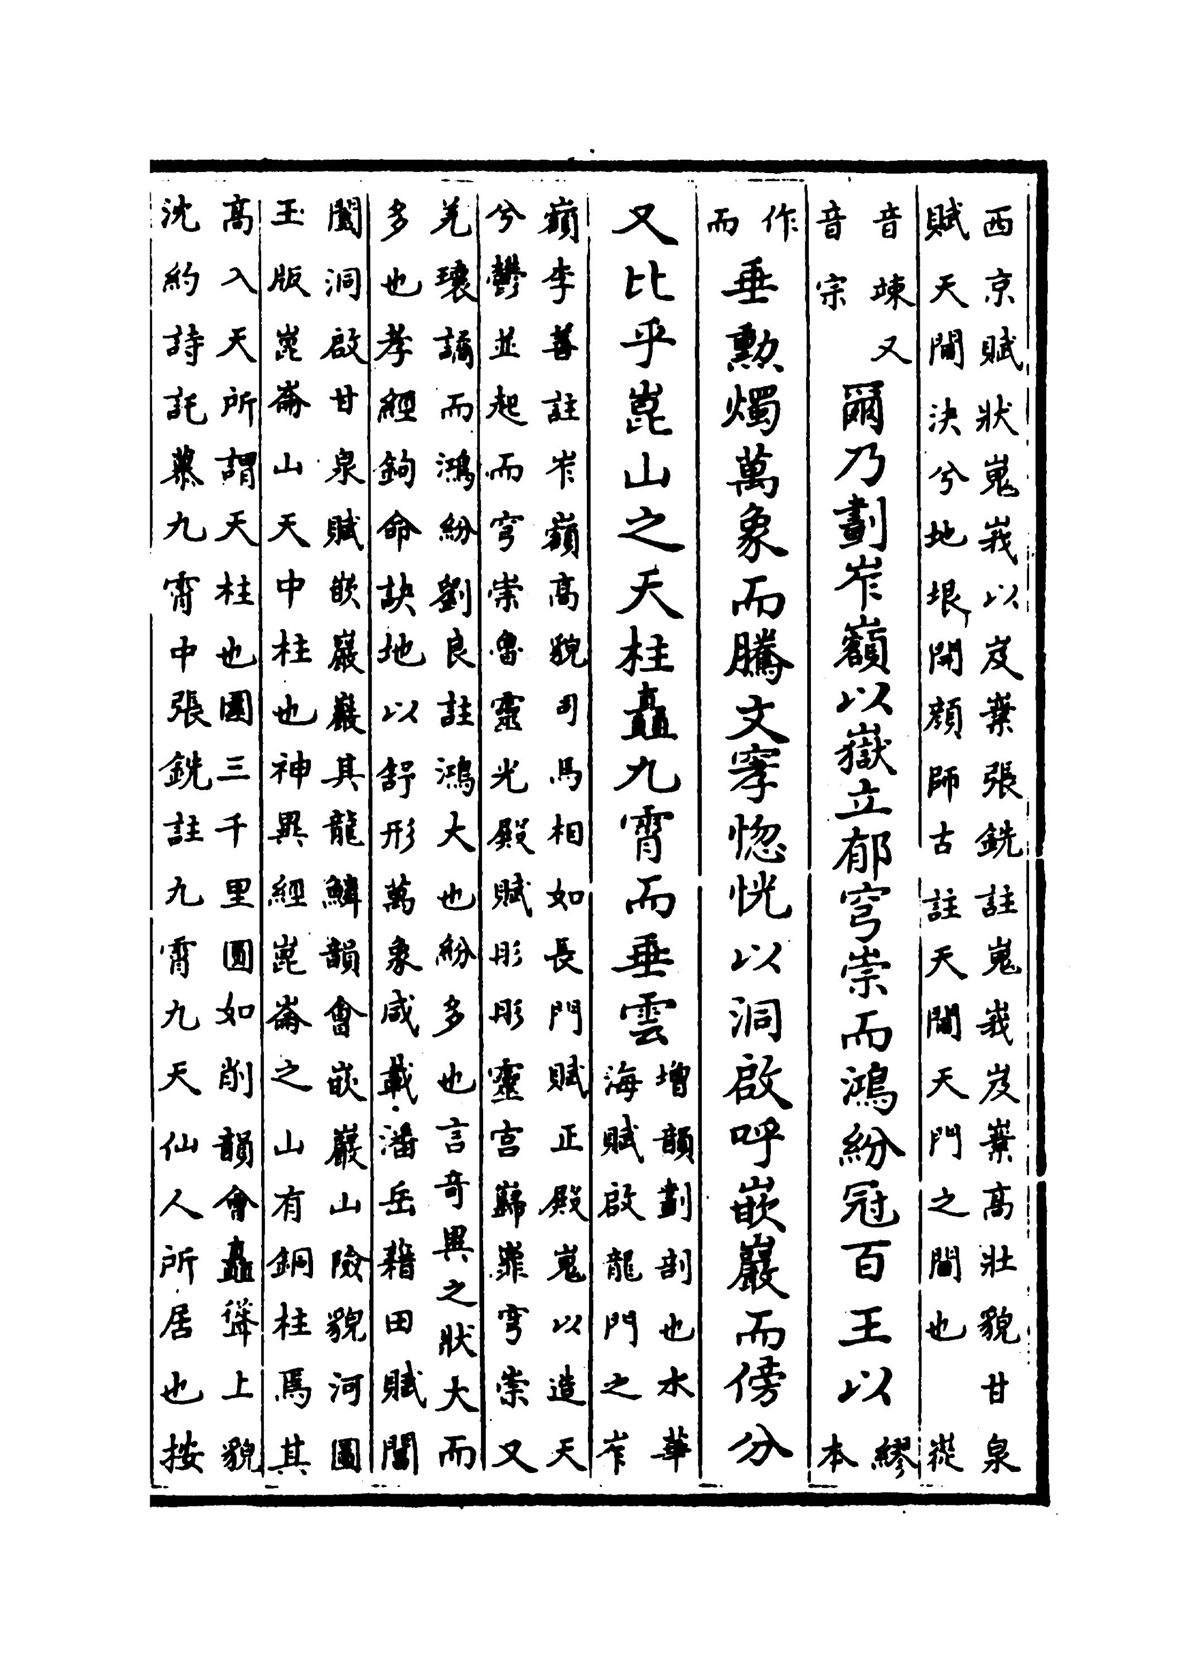 西京賦狀嵬峩以岌嶪張銑註嵬峩岌嶪高壯貌甘泉
賦天閫決兮地垠開顔師古註天閫天門之閫也嵸
音竦又
音宗
爾乃劃岝嶺以嶽立郁穹崇而鴻紛冠百王以
繆
本
作
而
垂勲燭萬象而騰文窙惚恍以洞啟呼嵌巖而傍分
又比乎崑山之天柱矗九霄而垂雲
增韻劃剖也水華
海賦啟龍門之岝
嶺李善註岝嶺高貌司馬相如長門賦正殿嵬以造天
兮鬱並起而穹崇魯靈光殿賦彤彤靈宫巋嶵穹崇又
羌瓌譎而鴻紛劉良註鴻大也紛多也言奇異之狀大而
多也孝經鉤命訣地以舒形萬象咸載潘岳藉田賦閶
闔洞啟甘泉賦嵌巖巖其龍鱗韻會嵌巖山險貌河圖
玉版崑崙山天中柱也神異經崑崙之山有銅柱焉其
高入天所謂天柱也圍三千里圓如削韻會矗聳上貌
沈約詩託慕九霄中張銑註九霄九天仙人所居也按